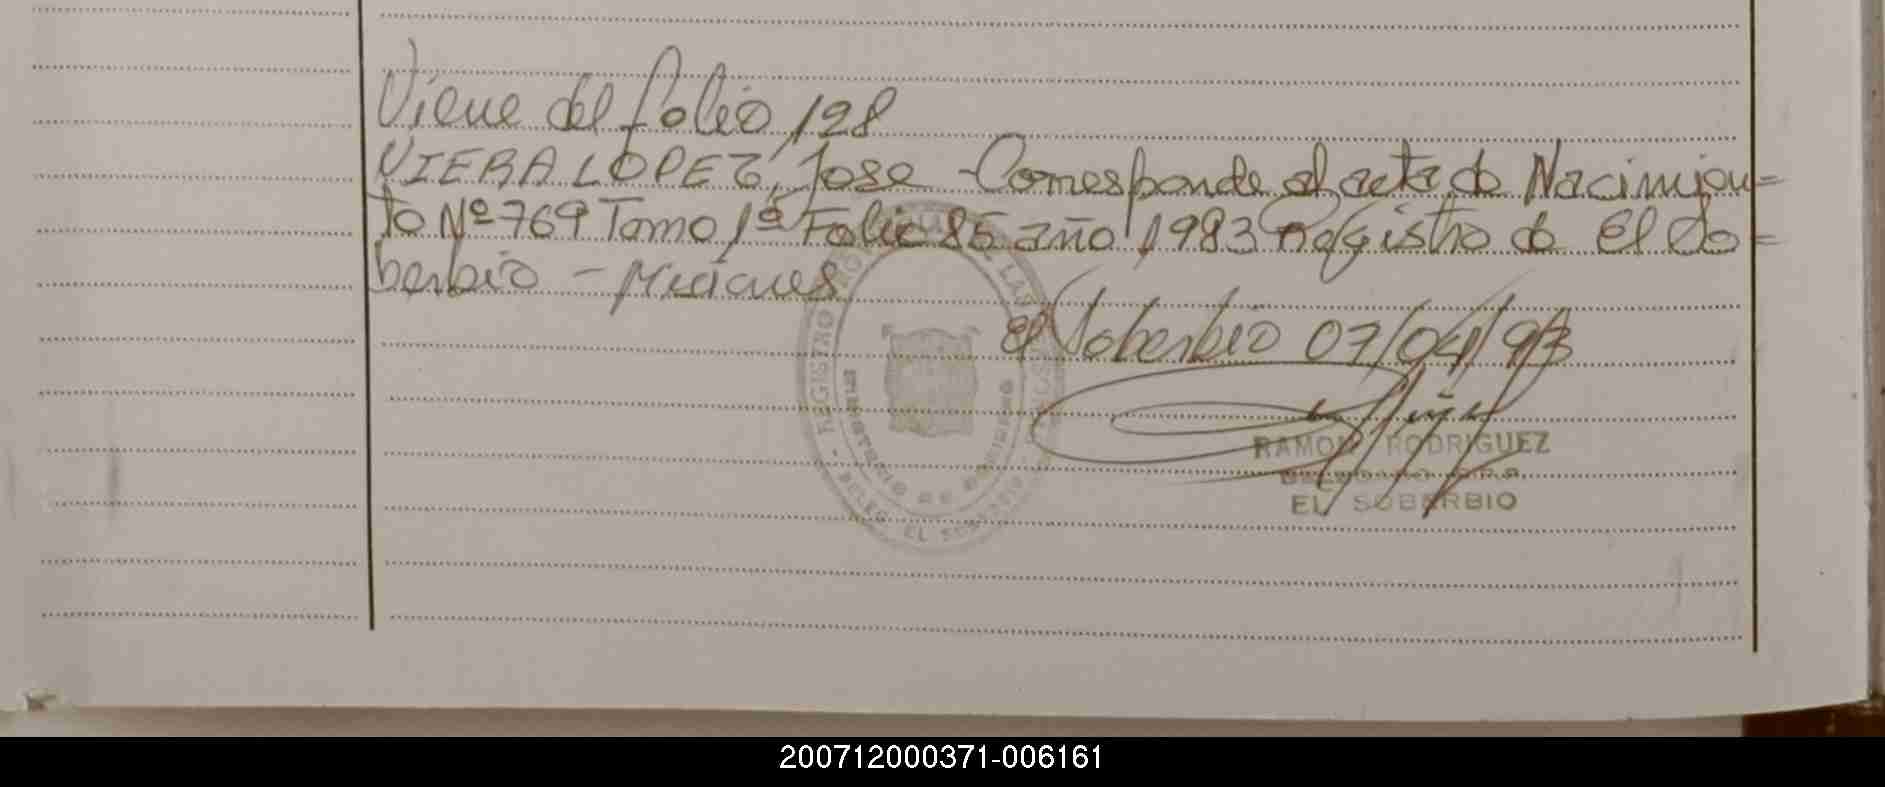 Viene del folio 128
VIERA LOPEZ, Jose - Corresponde al acta de Nacimien=
to Nº 769 Tomo 1º Folio 85 año 1983 Registro de El So=
berbio - Misiones
El Soberbio 07/04/93
RAMON RODRIGUEZ
EL SOBERBIO
REGISTRO
LAS
MINISTERIO DE GOBIERNO
DELEG. EL SOBERBIO
200712000371-006161